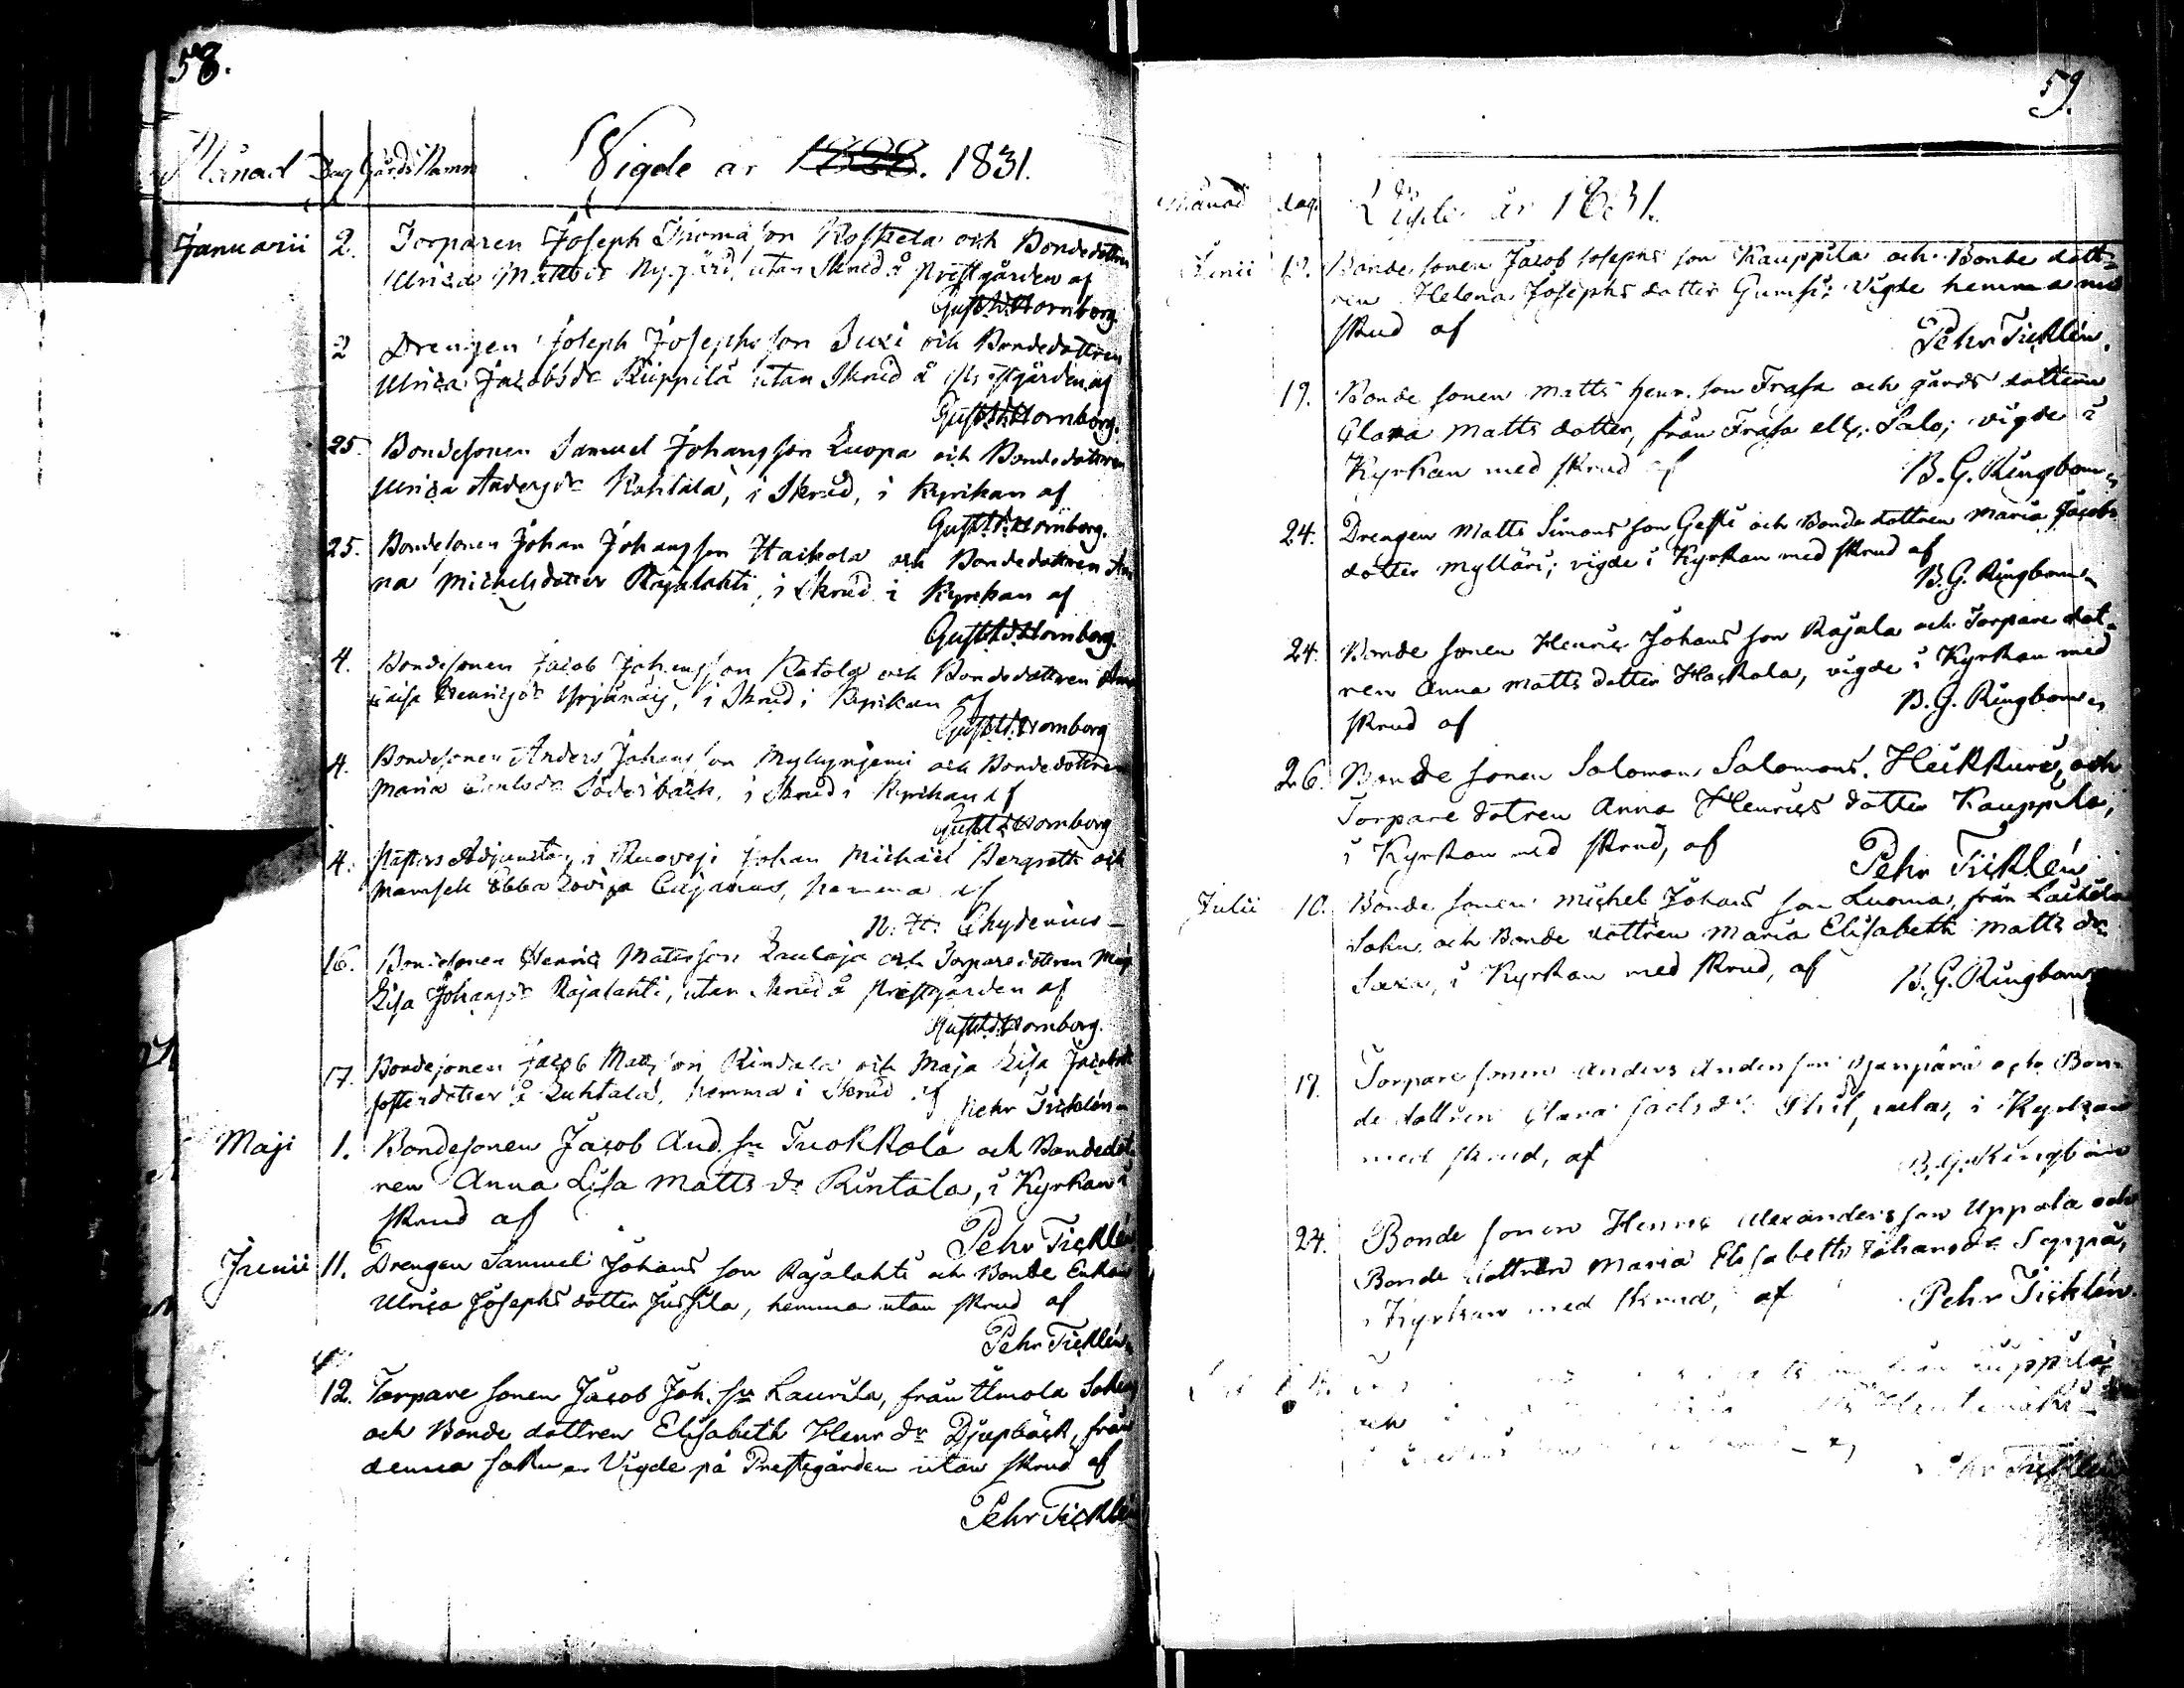 58.
Månad Dag Gårds Namn Vigde år 1828. 1831.
Januarii 2. Torparen Joseph Thomasson Koskela och Bondedottren
Ulrica Mattsdr Nygård, utan Skrud å Prestgården af
Gust. Ad. Hornborg.
2 Drengen Joseph Josephsson Juxi och Bondedottren
Ulrica Jacobsdr Kuppila utan Skrud å Prestgården af
Gust. Ad. Hornborg.
25. Bondesonen Samuel Johansson Luopa och Bondedottren
Ulrica Andersdr Kohtala, i Skrud, i Kyrkan af
Gust. Ad. Hornborg.
25. Bondesonen Johan Johansson Haikola och Bondedottren An
na Michelsdotter Rajalahti, i Skrud i Kyrkan af
Gust. Ad. Hornborg.
4. Bondesonen Jacob Johansson Katola och Bondedottren Anna
Caisa Henricsdr Yrjänäis, i Skrud i Kyrkan af
Gust. Ad. Hornborg
4. Bondesonen Anders Johansson Myllyniemi och Bondedottren
Maria Carlsdr Söderback, i Skrud i Kyrkan af
Gust. Ad. Hornborg
4. Pastors Adjuncten i Ruovesi Johan Michael Bergroth och
Mamsell Ebba Lovisa Cajanus, hemma af
N. H. Chydenius
16. Bondesonen Henric Mattsson Laulaja och Torparedottren Maja
Lisa Johansdr Rajalahti, utan Skrud å Prestgården af
Gust. Ad. Hornborg.
17. Bondesonen Jacob Mattsson Rindala och Maja Lisa Jacobsdr
fosterdotter å Luhtala, hemma i Skrud af
Pehr Ticklén
Maji 1. Bondesonen Jacob And. sn Tuokkola och Bondedot
ren Anna Lisa Matts dr Rintala, i Kyrkan i
skrud af
Pehr Ticklén
Junii 11. Drengen Samuel Johans son Rajalahti och Bonde Enkan
Ulrica Josephs dotter Jussila, hemma utan skrud af
Pehr Ticklén
12. Torpare sonen Jacob Joh. sn Laurila, från Ilmola Sokn
och Bonde dottren Elisabeth Henr dr Djupbäck, från
denna sokn, Vigde på Prestgården utan skrud af
Pehr Ticklén
59.
Månad dag. Vigde år 1831.
Junii 12. Bonde sonen Jacob Josephs son Kauppila och Bonde dott-
ren Helena Josephs dotter Gumsi; Vigde hemma med
skrud af
Pehr Ticklén.
19. Bonde sonen Matts Henr. son Frasa och gårds dottren
Clara Matts dotter, från Frasa ell. Salo; vigde i
Kyrkan med skrud af
B. G. Ringbom
24. Drengen Matts Simons son Gessi och Bonde dottren Maria Jacobs
dotter Mylläri; vigde i Kyrkan med skrud af
B. G. Ringbom
24. Bonde sonen Henric Johans son Rajala och Torpare dot-
ren Anna Matts dotter Hackola, vigde i Kyrkan med
skrud af
B. G. Ringbom
26. Bonde sonen Salomon Salomons. Heikkuri, och
Torpare dotren Anna Henrics dotter Kauppila,
i Kyrkan med skrud, af
Pehr Ticklén
Julii 10. Bonde sonen Michel Johans son Luoma, från Laihela
Sokn och Bonde dottren Maria Elisabeth Matts dr
Saxa, i Kyrkan med skrud, af
B. G. Ringbom
17. Torpare sonen Anders Anders son och Bon-
de dottren Clara dr i Kyrkan
med skrud, af
B. G. Ringbom
24. Bonde sonen Henric Alexanders son Uppala och
Bonde dottren Maria Elisabeth Johans dr Seppä,
i Kyrkan med skrud, af
Pehr Ticklén.
Pehr Ticklén